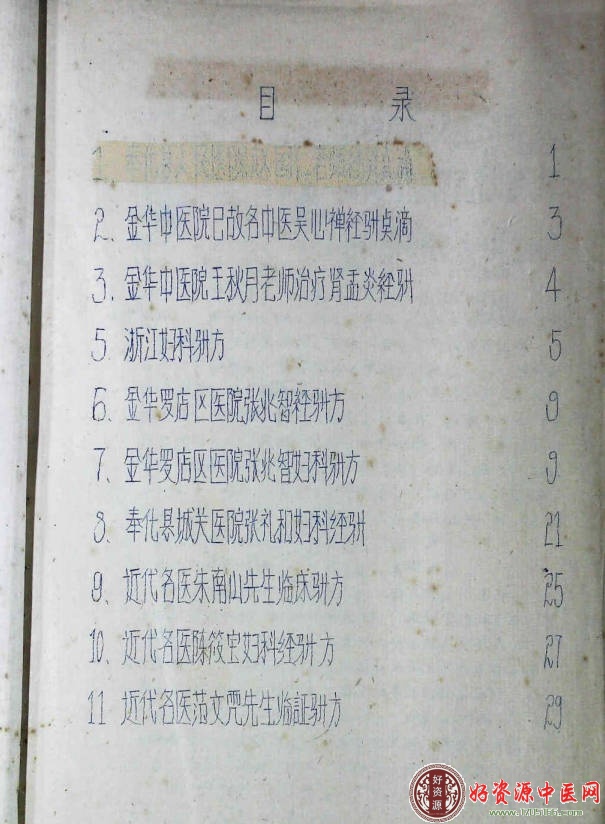 目 录
1、奉化县人医院 1
2、金华中医院已故名中医吴心禅经驗点滴 3
3、金华中医院王秋月老师治疗肾盂炎经驗 4
5、浙江妇科驗方 5
6、金华罗店区医院张兆智经驗方 9
7、金华罗店区医院张兆智妇科驗方 9
8、奉化县城关医院张礼和妇科经驗 21
9、近代名医朱南山先生临床驗方 25
10、近代名医陈筱宝妇科经驗方 27
11 近代名医范文兕先生临証驗方 29
好资源中医网
好资源